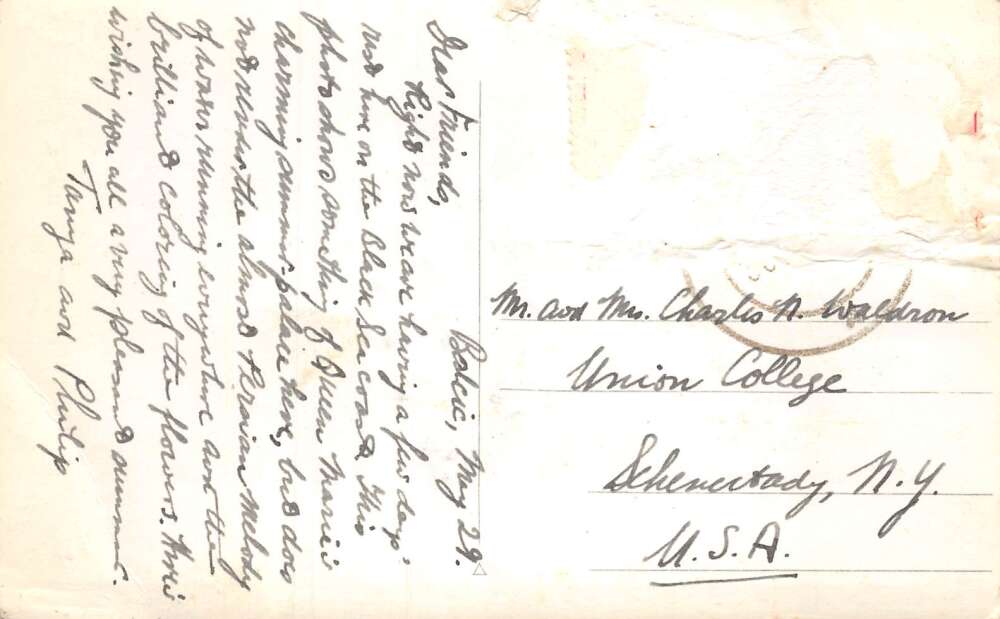 Balcic, May 29.
Dear Friends,
Right now we are having a few days'
rest here on the Black Sea coast. This
photo shows something of Queen Marie's
charming summer-palace here, but does
not render the almost Persian melody
of water running everywhere and the
brilliant coloring of the flowers. Here's
wishing you all a very pleasant summer.
Tanya and Philip
Mr. and Mrs. Charles N. Waldron
Union College
Schenectady, N.Y.
U.S.A.